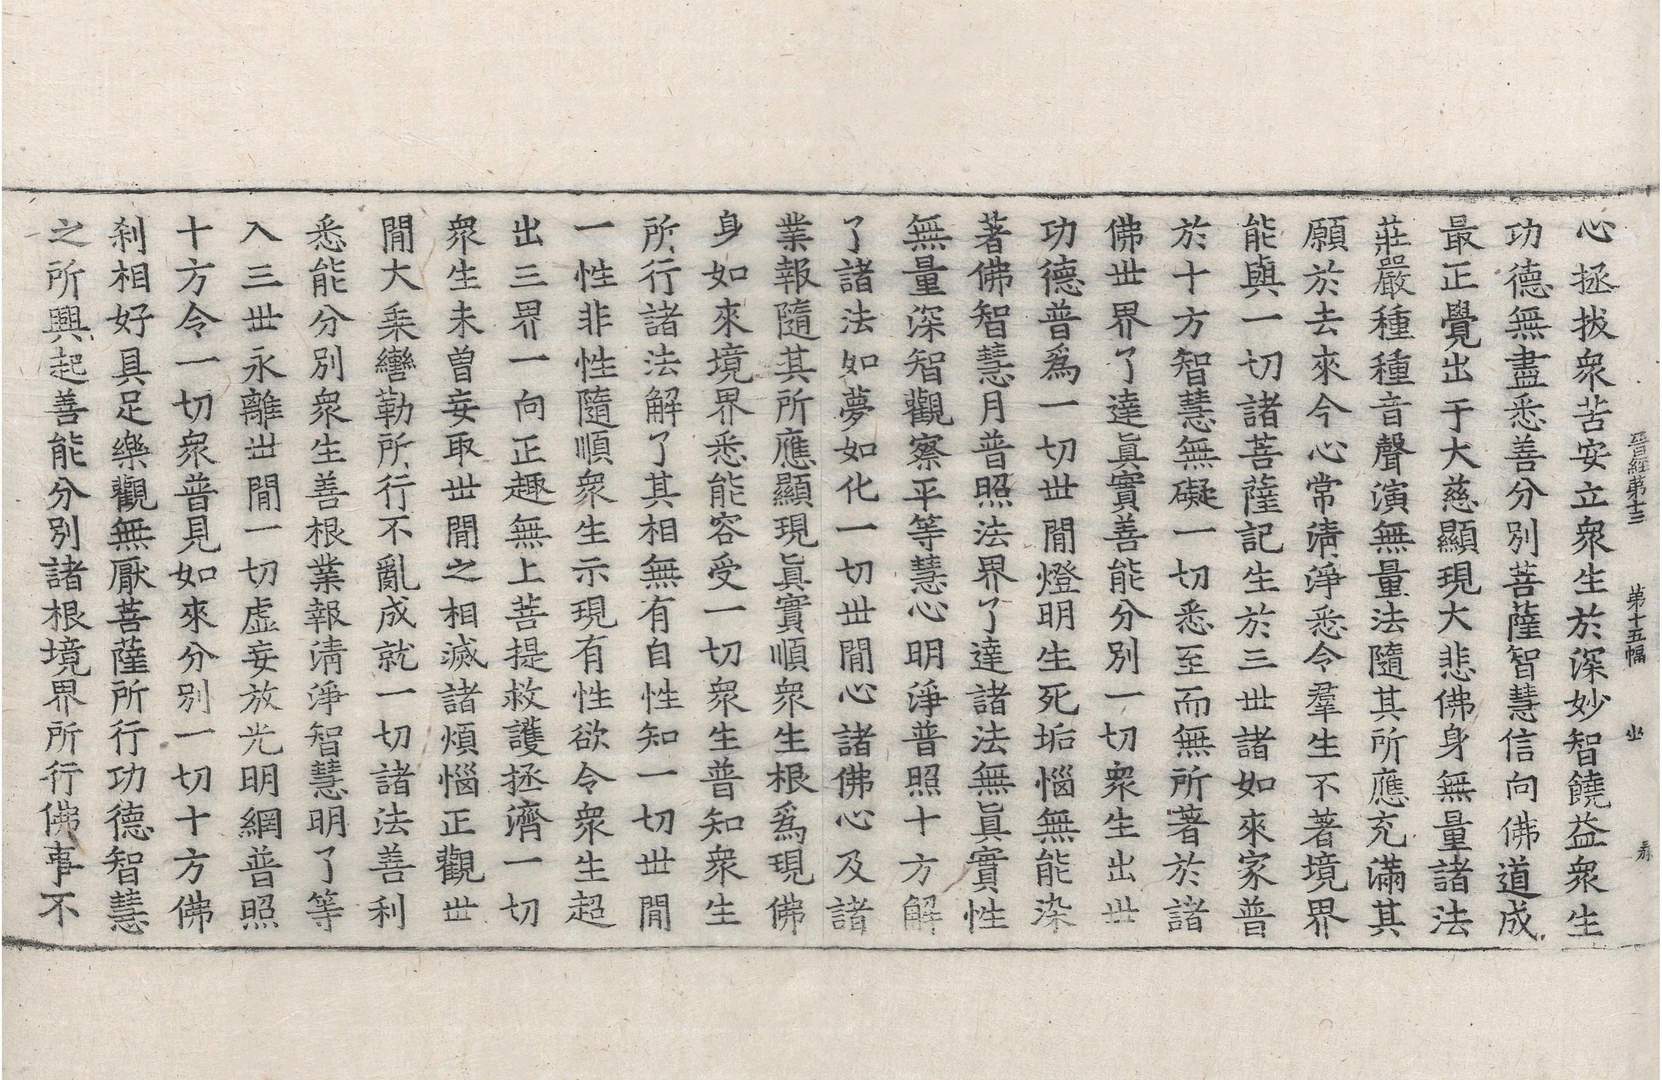 晉經第十三 第十五幅 坐
心拯拔衆苦安立衆生於深妙智饒益衆生
功德無盡悉善分別菩薩智慧信向佛道成
最正覺出于大慈顯現大悲佛身無量諸法
莊嚴種種音聲演無量法隨其所應充滿其
願於去來今心常淸淨悉令羣生不著境界
能與一切諸菩薩記生於三世諸如來家普
於十方智慧無礙一切悉至而無所著於諸
佛世界了達眞實善能分別一切衆生出世
功德普爲一切世閒燈明生死垢惱無能染
著佛智慧月普照法界了達諸法無眞實性
無量深智觀察平等慧心明淨普照十方解
了諸法如夢如化一切世閒心諸佛心及諸
業報隨其所應顯現眞實順衆生根爲現佛
身如來境界悉能容受一切衆生普知衆生
所行諸法解了其相無有自性知一切世閒
一性非性隨順衆生示現有性欲令衆生超
出三界一向正趣無上菩提救護拯濟一切
衆生未曾妄取世閒之相滅諸煩惱正觀世
閒大乘轡勒所行不亂成就一切諸法善利
悉能分別衆生善根業報淸淨智慧明了等
入三世永離世閒一切虛妄放光明網普照
十方令一切衆普見如來分別一切十方佛
刹相好具足樂觀無厭菩薩所行功德智慧
之所興起善能分別諸根境界所行佛事不